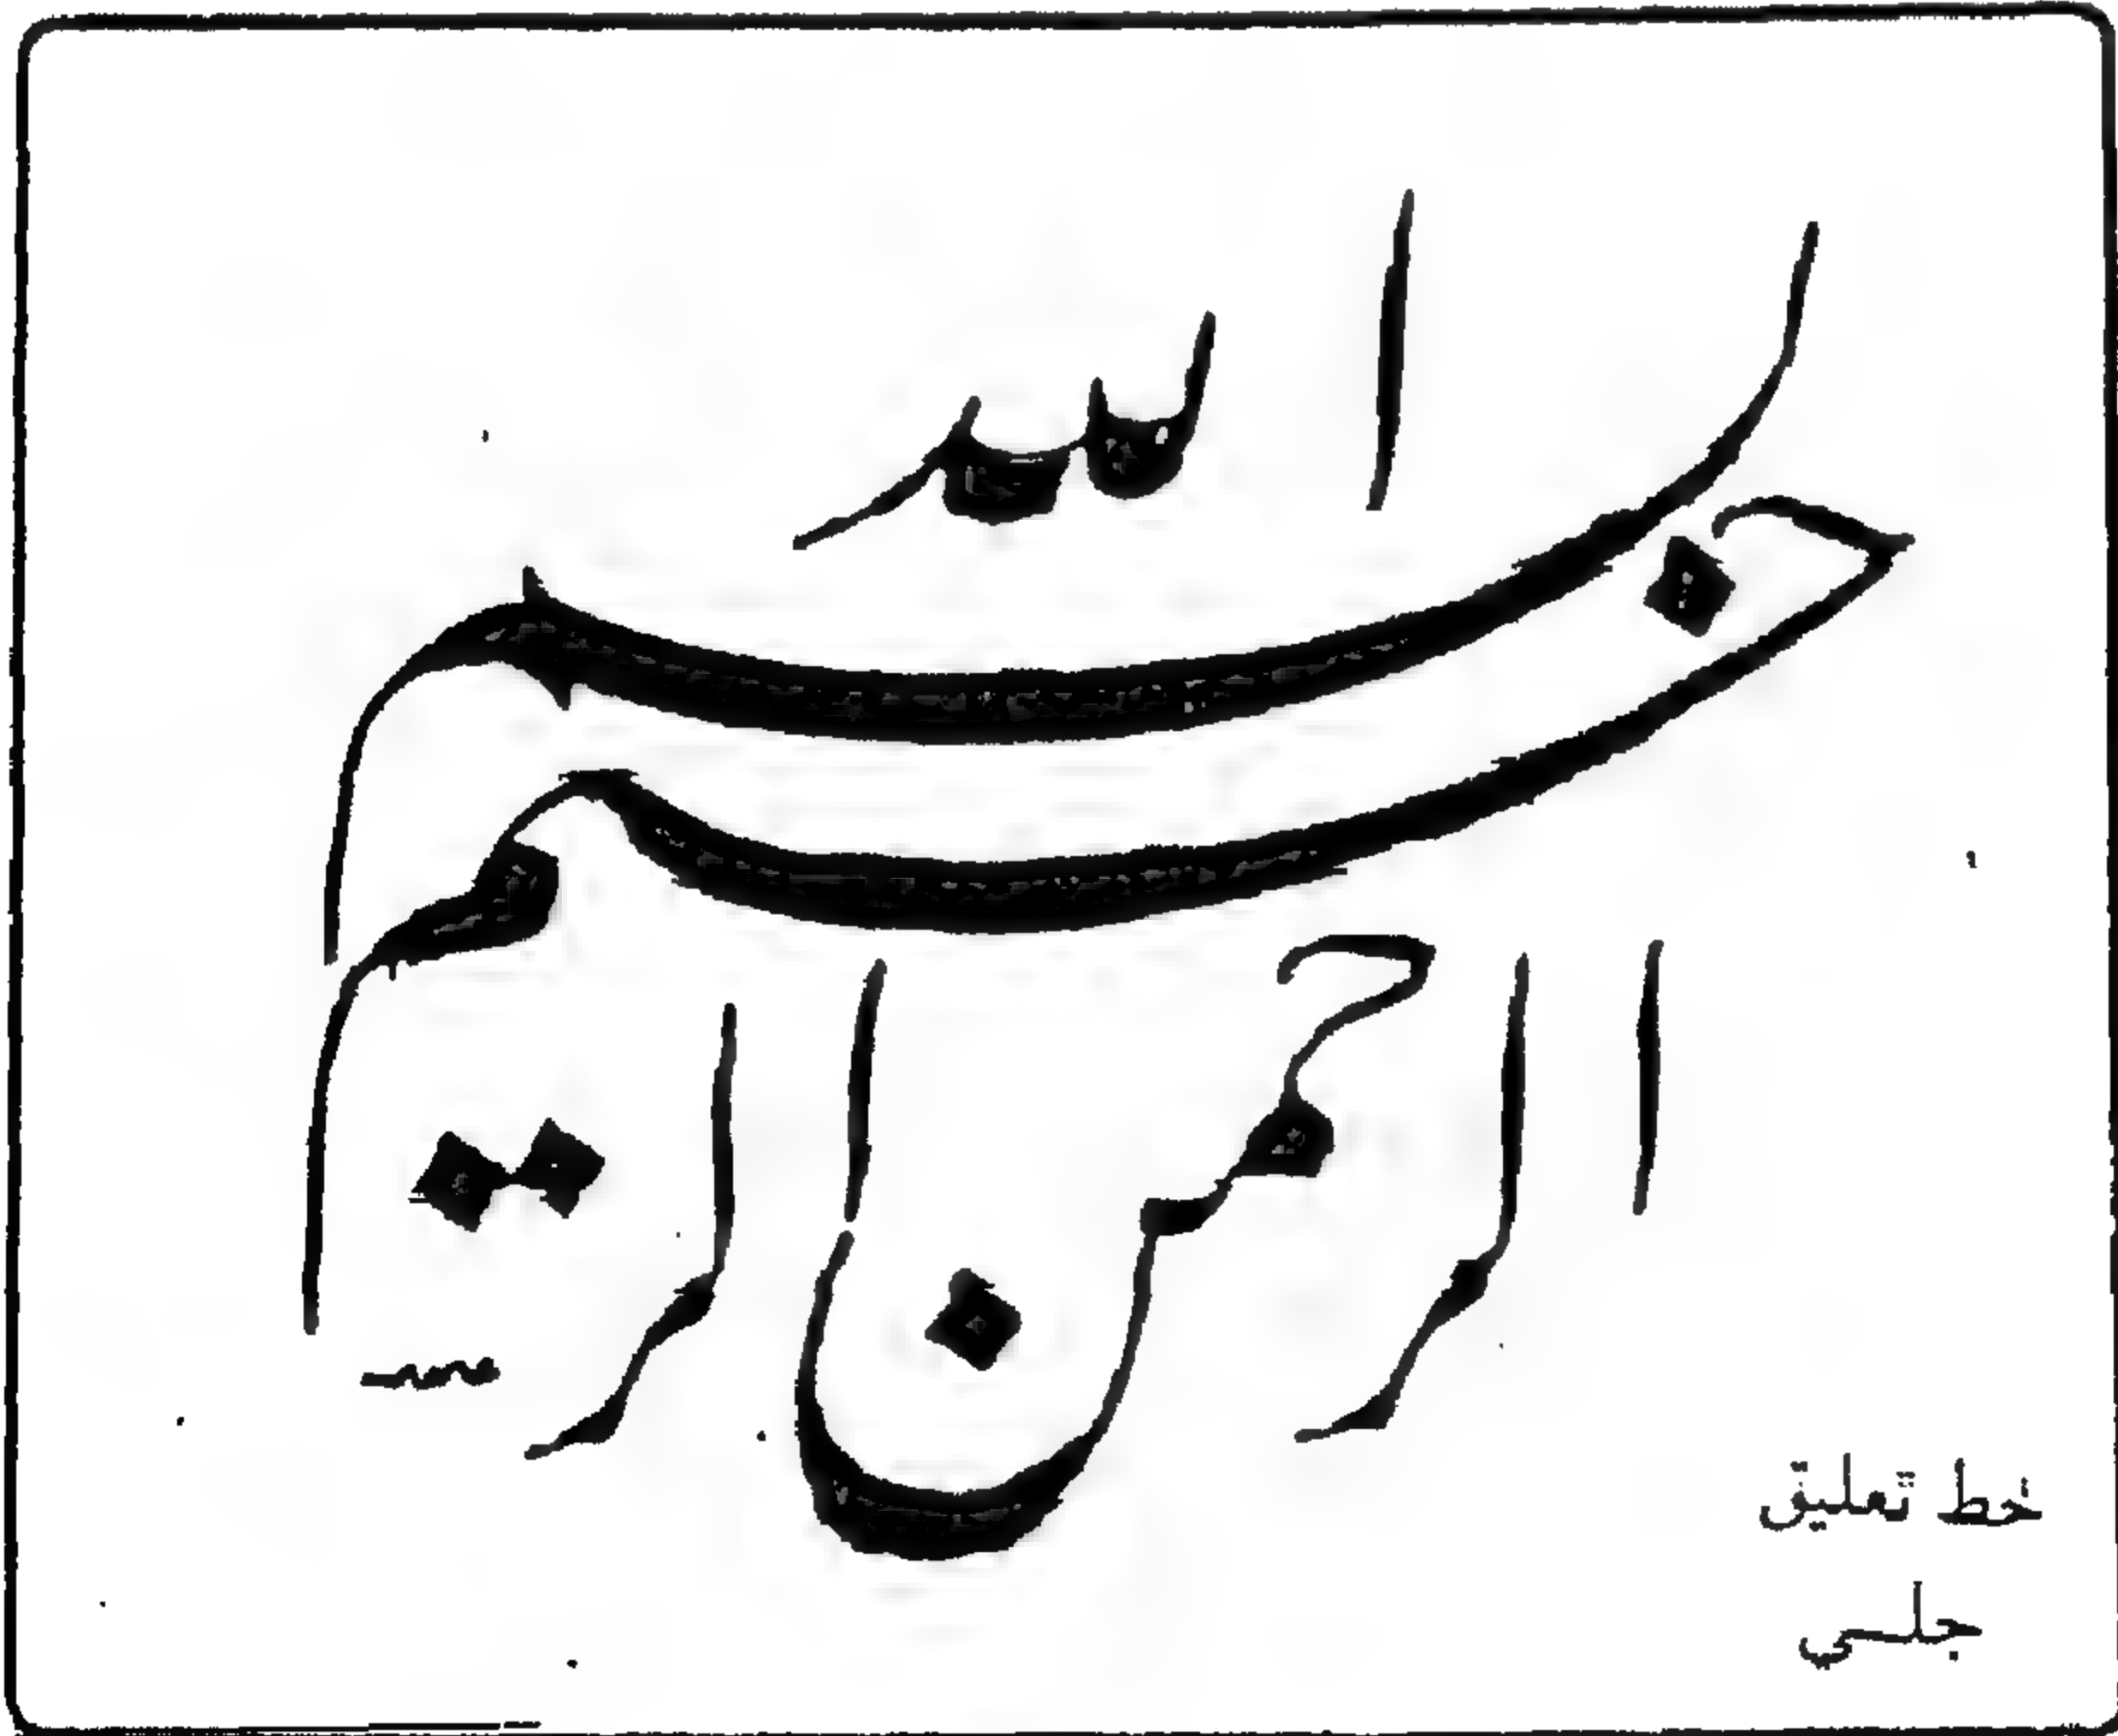 بسم الله
الرحمن الرحيم
خط تعليق
جلي